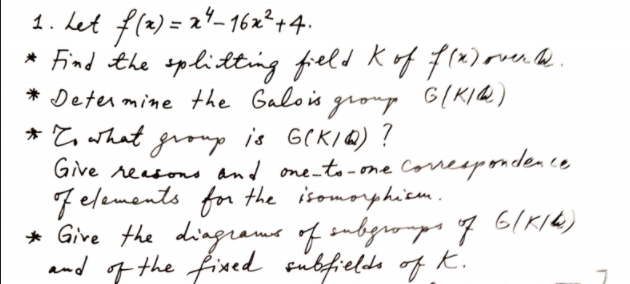 1. Let f(x) = x⁴-16x²+4.
* Find the splitting field K of f(x) over Q.
* Determine the Galois group G(K/Q)
* To what group is G(K/Q) ?
Give reasons and one-to-one correspondence
of elements for the isomorphism.
* Give the diagrams of subgroups of G(K/Q)
and of the fixed subfields of K.